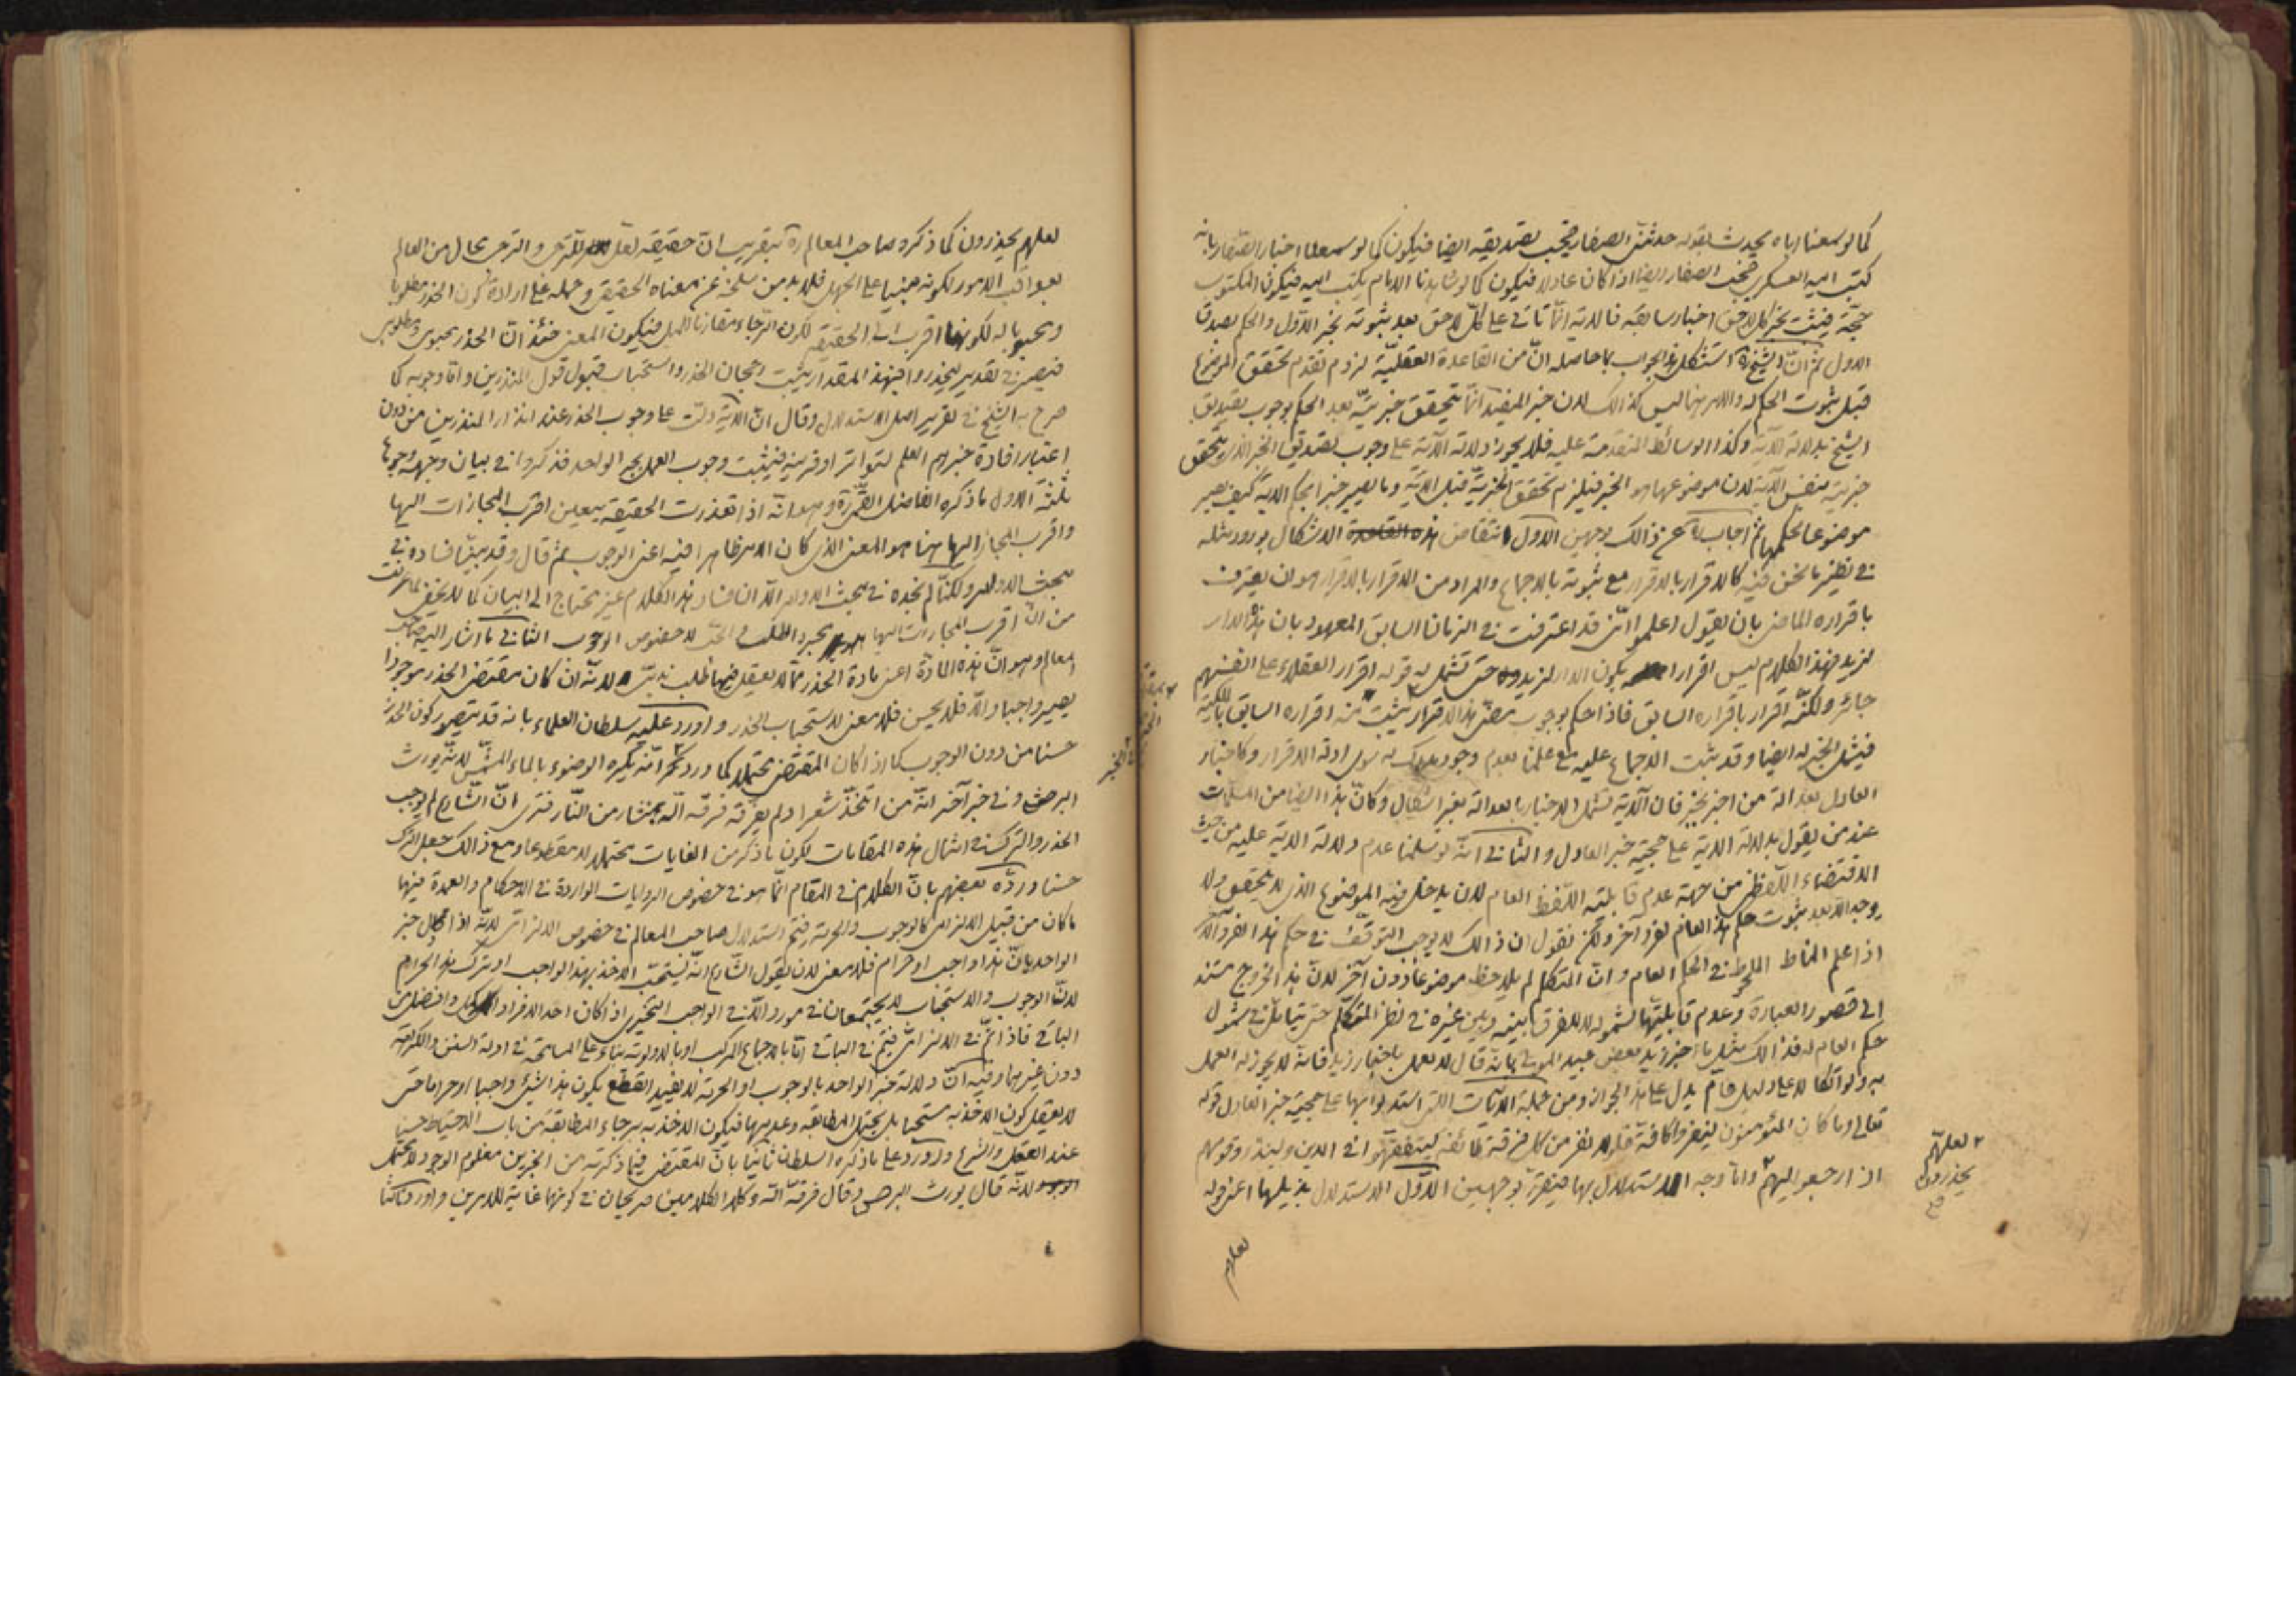 كما لو سمعناه اياه يحدث بقوله حدثنى الصفار فيجب تصديقه ايضا فيكون كما لو سمعنا اخبار الصفار بانه
كتب اليه العسكرى فيجب الصفار ايضا اذا كان عادلا فيكون كما لو شاهدنا الامام يكتب اليه فيكون المكتوب
حجّة فيثبت بخبر كل لاحق اخبار سابقه فالاية انّما تاتى على كلّ لاحق بعد ثبوته بخبر الاوّل والحكم بصدق
الاول ثم انّ الشيخ ره استشكل هذا الجواب بما حاصله انّ من القاعدة العقليّة لزوم تقدم تحقق الموضوع
قبل ثبوت الحكم له والامر هنا ليس كذالك لان خبر المفيد انّما يتحقق خبريّته بعد الحكم بوجوب تصديق
الشيخ بدلالة الآية وكذا الوسائط المتقدمة عليه فلا يجوز دلالة الآية على وجوب تصديق الخبر الذى يتحقق
خبريته بنفس الآية لان موضوعها هو الخبر فيلزم تحقق الخبريّة قبل الآية وما يصير خبرا بحكم الاية كيف يصير
موضوعا لحكمها ثم اجاب ره عن ذالك بوجهين الاول انتقاض هذه القاعدة الاشكال بورود مثله
فى نظير ما نحن فيه كالاقرار بالاقرار مع ثبوته بالاجماع والمراد من الاقرار بالاقرار هو ان يعترف
باقراره الماضى بان يقول اعلموا انّى قد اعترفت فى الزمان السابق المعهود بان هذه الدار
لزيد فهذا الكلام ليس اقرارا بكون الدار لزيد حتى تشمله قوله اقرار العقلاء على انفسهم
جائز ولكنّه اقرار باقراره السابق فاذا حكم بوجوب مضىّ هذا الاقرار يثبت منه اقراره السابق بالكلية
فيشمل الخبر له ايضا وقد ثبت الاجماع عليه مع علمنا بعدم وجود مدرك له سوى ادلة الاقرار وكاخبار
العادل بعدالة من اخبر بخبر فان الآية تشمل الاخبار بالعدالة بغير اشكال وكانّ هذا ايضا من المسلمات
عند من يقول بدلالة الاية على حجية خبر العادل والثانى انّه لو سلمنا عدم دلالة الاية عليه من حيث
الاقتضاء اللّفظى من جهة عدم قابلية اللّفظ العام لان يدخل فيه الموضوع الذى لا يتحقق ولا
يوجد الا بعد ثبوت حكم هذا العام لفرد آخر ولكن نقول ان ذالك لا يوجب التوقّف فى حكم هذا الفرد الآخر
اذا علم المناط الملحوظ فى الحكم العام وانّ المتكلم لم يلاحظ موضوعا دون آخر لانّ هذا الخروج مستند
الى قصور العبارة وعدم قابليّتها لشموله لا للفرق بينه وبين غيره فى نظر المتكلّم حتى يتامّل فى شمول
حكم العام له فذالك مثل ما اخبر زيد بعض عبيد المولى بانه قال لا تعمل باخبار زيد فانه لا يجوز له العمل
به ولو اتكالا على دليل عام يدل على هذا الجواز ومن جملة الآيات التى استدلوا بها على حجيّة خبر العادل قوله
تعالى وما كان المؤمنون لينفروا كافة فلولا نفر من كل فرقة طائفة ليتفقهوا فى الدين ولينذروا قومهم
اذا رجعوا اليهم وامّا وجه الاستدلال بها فيتقرّر بوجهين الاوّل الاستدلال بذيلها اعنى قوله
لعلهم
يحذرون
صح
لعلهم
لعلهم يحذرون كما ذكره صاحب المعالم ره بتقريب انّ حقيقة لعلّ للترّجى والترجى محال من العالم
بعواقب الامور لكونه مبنيا على الجهل فلا بد من سلخه عن معناه الحقيقى وحمله على ارادة كون الحذر مطلوبا
ومحبوبا له لكونها اقرب الى الحقيقة لكون الرّجاء مقارنا للميل فيكون المعنى حينئذ انّ الحذر محبوبى ومطلوبى
فيصير فى تقدير ليحذروا فبهذا المقدار يثبت رجحان الحذر واستحباب قبول قول المنذرين وامّا وجوبه كما
صرح به الشيخ فى تقرير اصل الاستدلال وقال انّ الاية دلّت على وجوب الحذر عند انذار المنذرين من دون
اعتبار افادة خبرهم العلم لتواتر او قرينة فيثبت وجوب العمل بخبر الواحد فذكروا فى بيان وجهه وجوها
ثلثة الاول ما ذكره الفاضل القمّى ره وهو انّه اذا تعذرت الحقيقة يتعين اقرب المجازات اليها
واقرب المجاز اليها هنا هو المعنى الذى كان الامر ظاهرا فيه اعنى الوجوب ثم قال وقد بيّنا فساده فى
مبحث الاوامر ولكنّا لم نجده فى مبحث الاوامر الّا ان فساد هذا الكلام غير محتاج الى البيان كما لا يخفى لما عرفت
من انّ اقرب المجازات اليها مجرد الطلب والحبّ لا خصوص الوجوب الثانى ما اشار اليه صاحب
المعالم وهو انّ هذه المادّة اعنى مادة الحذر ممّا لا يعقل فيها طلب ندبىّ لانّه ان كان مقتضى الحذر موجودا
يصير واجبا والّا فلا يحسن فلا معنى لاستحباب الحذر واورد عليه سلطان العلماء بانه قد يتصور كون الحذر
حسنا من دون الوجوب كما اذا كان المقتضى محتملا كما ورد انّه يكره الوضوء بالماء المشمّس لانّه يورث
البرص وفى خبر آخر انّه من اتّخذ شعرا ولم يفرّقه فرّقه الله بمنشار من النّار فترى انّ الشّارع لم يوجب
الحذر والترك فى امثال هذه المقامات لكون ما ذكر من الغايات محتملا لا مقطوعا ومع ذالك جعل الترك
حسنا وردّه بعضهم بانّ الكلام فى المقام انّما هو فى خصوص الروايات الواردة فى الاحكام والعمدة فيها
ما كان من قبيل الالزامى كالوجوب والحرمة فيتم استدلال صاحب المعالم فى خصوص الالزامى لانّه اذا قال خبر
الواحد بانّ هذا واجب او حرام فلا معنى لان يقول الشّارع انّه يستحبّ الاخذ بهذا الواجب او ترك هذا الحرام
لانّ الوجوب والاستحباب لا يجتمعان فى مورد الّا فى الواجب التخييرى اذا كان احد الافراد اكمل وافضل من
الباقى فاذا تمّ فى الالزامىّ فيتم فى الباقى امّا بالاجماع المركب او بالاولوية بناء على المسامحة فى ادلة السنن والكراهة
دون غيرهما وفيه انّ دلالة خبر الواحد بالوجوب او الحرمة لا يفيد القطع بكون هذا الشىء واجبا او حراما حتى
لا يعقل كون الاخذ به مستحبا بل يحتمل المطابقة وعدمها فيكون الاخذ به برجاء المطابقة من باب الاحتياط حسنا
عند العقل والشرع واورد على ما ذكره السلطان ثانيا بانّ المقتضى فيما ذكرته من الخبرين معلوم الوجود لا محتمل
الوجود لانّه قال يورث البرص وقال فرّقه الله وكلا الكلامين صريحان فى كونهما غاية للامرين واورد ثالثا